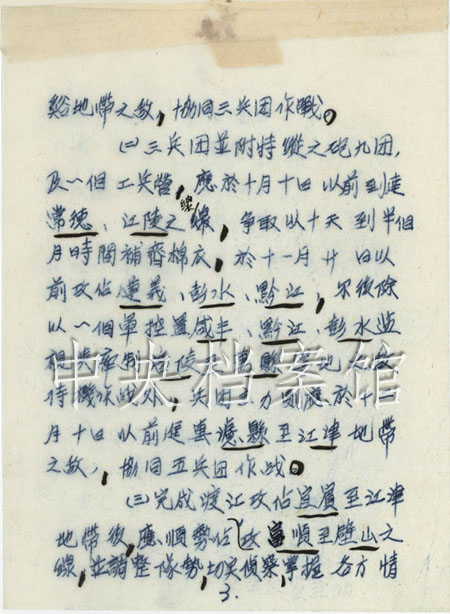 谿地帶之敌，协同三兵团作戰。
㈡三兵团並附特縱之砲九团，
及一個工兵營，應於十月十日以前到達
常德、江陵之線，争取以十天到半個
月時間補齊棉衣，於十一月廿日以
前攻佔遵義、彭水、黔江，尔後除
以一個軍控置咸丰、黔江、彭水监
待機外，兵团主力則應於十二
月十日以前進至瀘縣至江津地帶
之敌，协同五兵团作战。
㈢完成渡江攻佔宜賓至江津
地帶後，應順勢佔攻富順至壁山之
線，並調整隊勢，切实偵察，掌握各方情
3.
中央档案馆